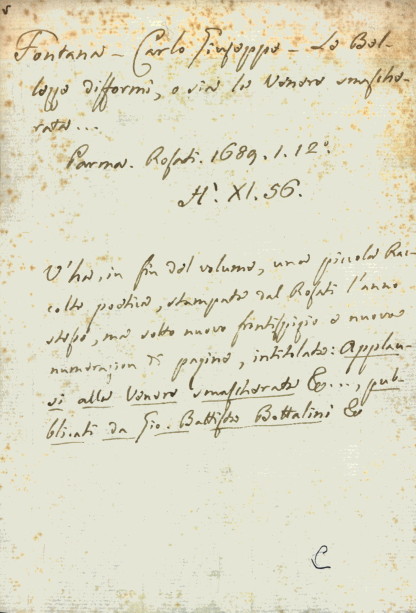 Fontana - Carlo Giuseppe - Le Bel-
lezze difformi, o sia la Venere smasche-
rata...
Parma. Rosati. 1689. 1. 12°.
H'. XI. 56.
V'ha, in fin del volume, una piccola Rac-
colta poetica, stampata dal Rosati l'anno
stesso, ma sotto nuovo frontispizio e nuova
numerazion di pagine, intitolata: Applau-
si alla Venere smascherata &..., pub-
blicati da Gio. Battista Bottalini &
C